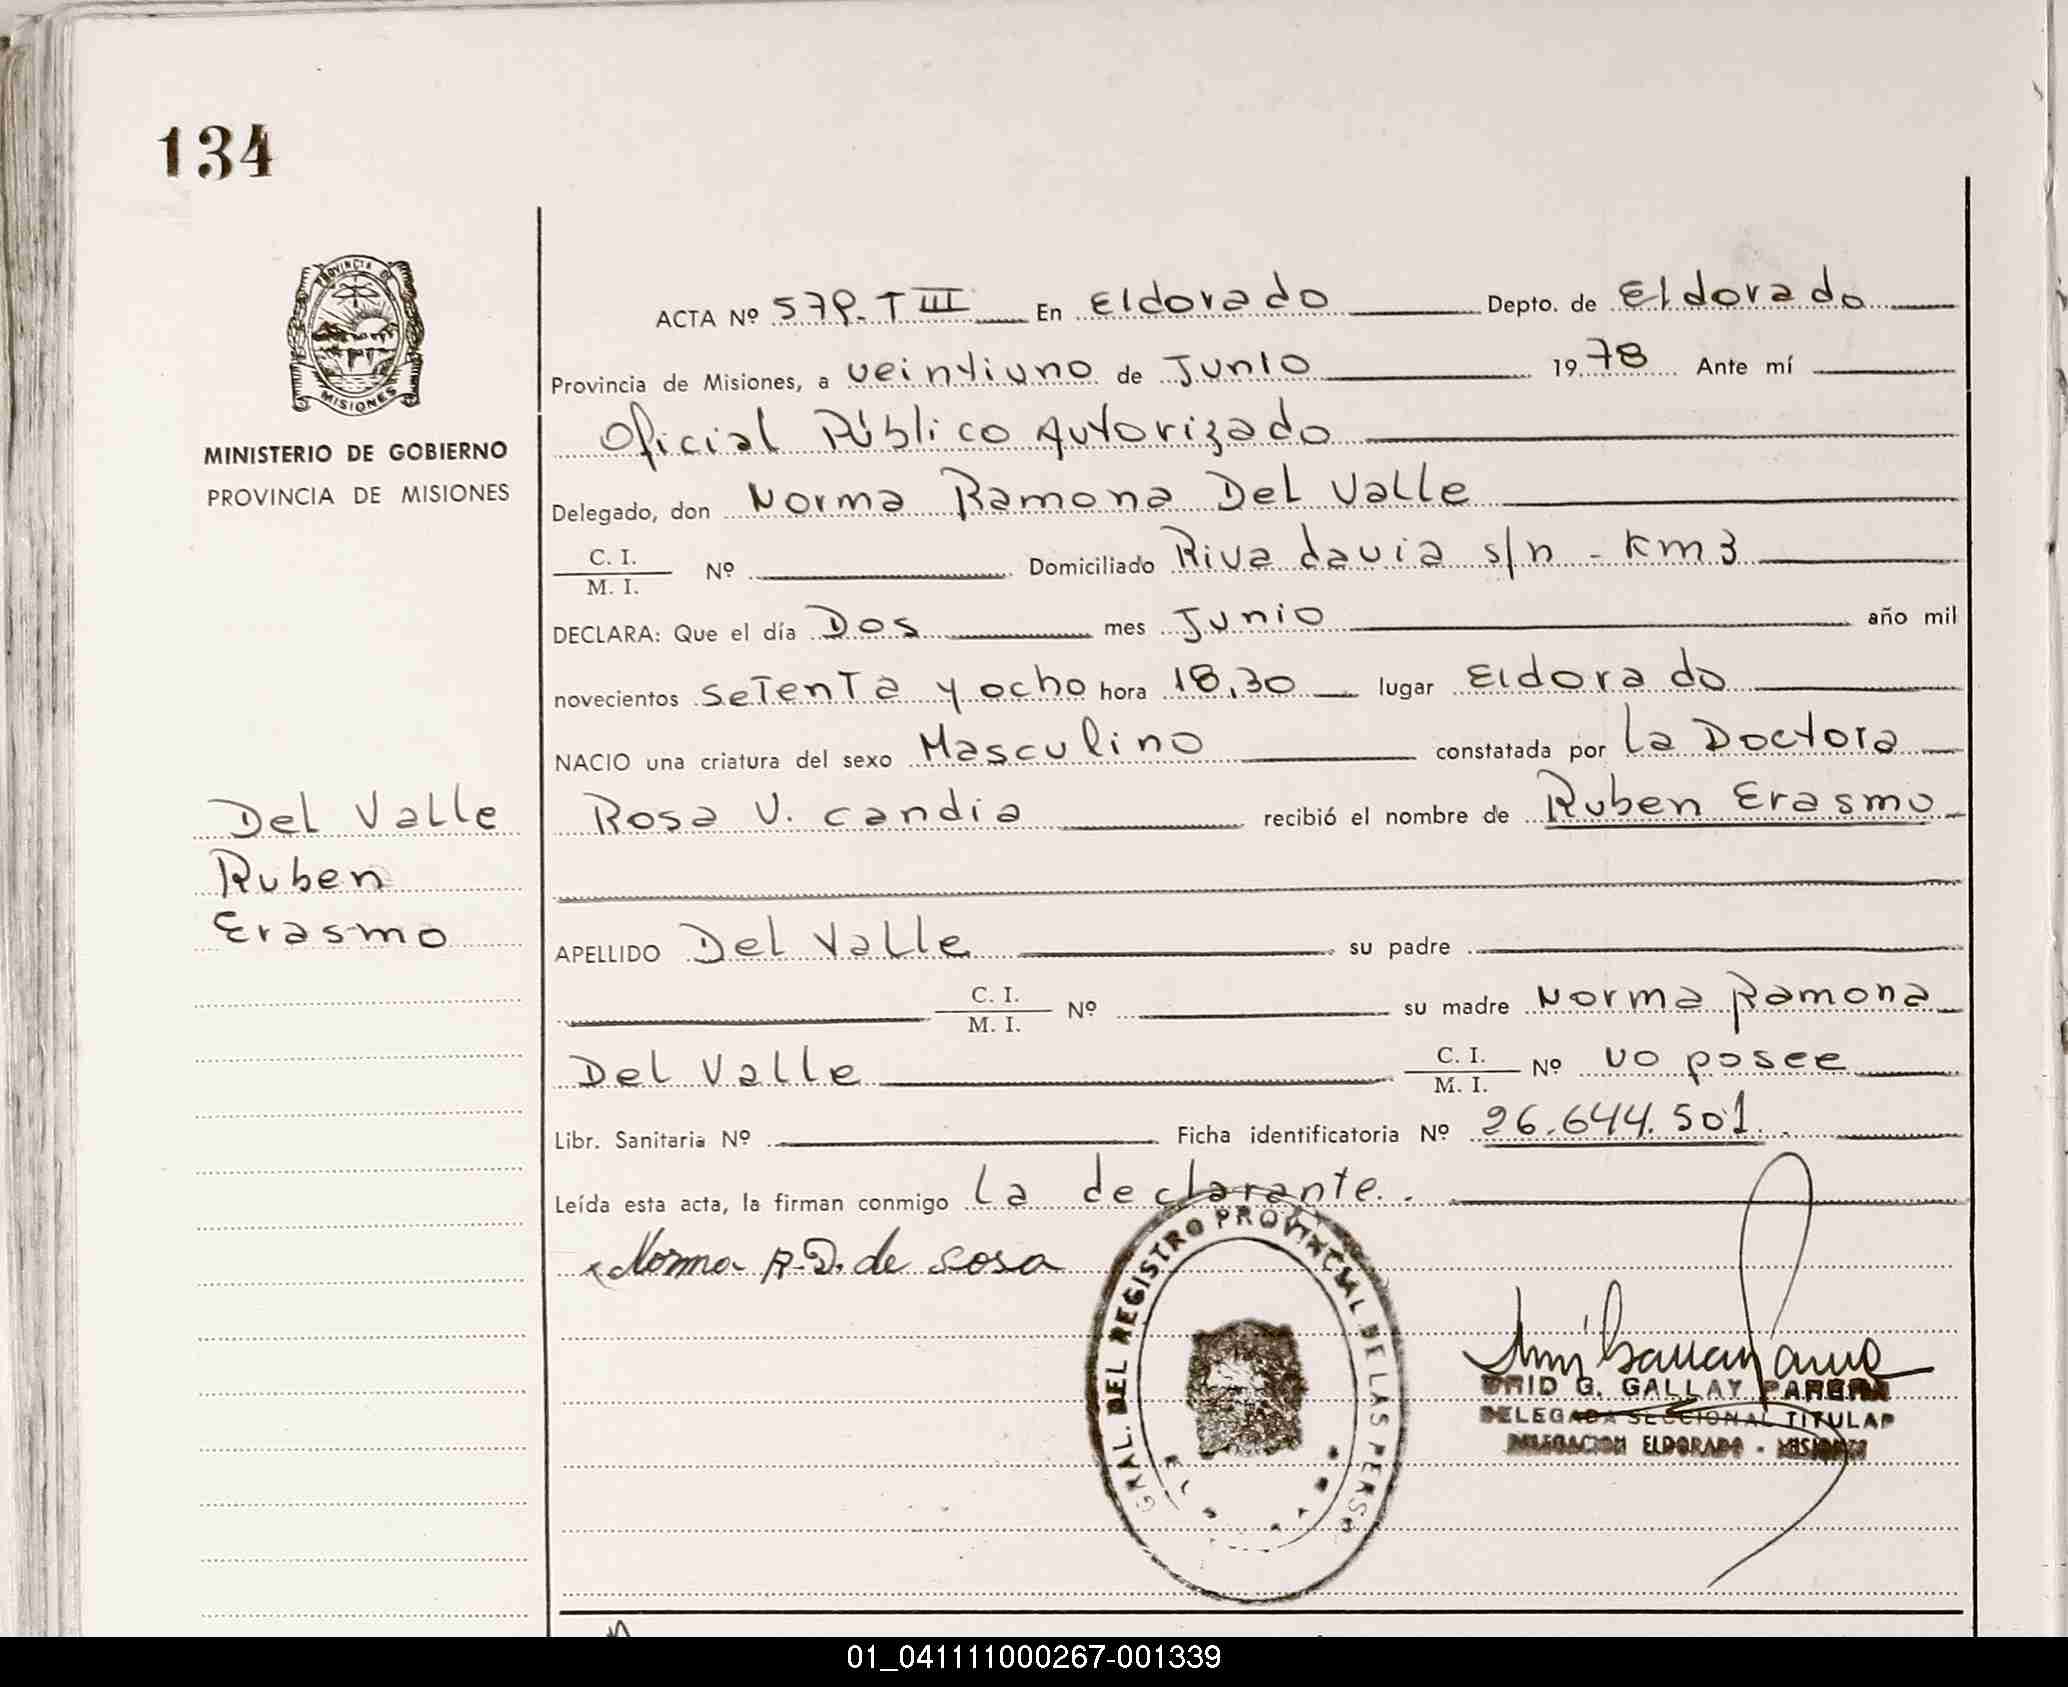 134
PROVINCIA DE
MISIONES
MINISTERIO DE GOBIERNO
PROVINCIA DE MISIONES
ACTA Nº 579-T III En Eldorado Depto. de Eldorado
Provincia de Misiones, a veintiuno de Junio 1978 Ante mí
Oficial Público Autorizado
Delegado, don Norma Ramona Del Valle
C. I.
M. I. Nº Domiciliado Rivadavia s/n - Km 3
DECLARA: Que el día Dos mes Junio año mil
novecientos setenta y ocho hora 18,30 lugar Eldorado
NACIO una criatura del sexo Masculino constatada por La Doctora
Rosa V. Candia recibió el nombre de Ruben Erasmo
Del Valle
Ruben
Erasmo
APELLIDO Del Valle su padre
C. I.
M. I. Nº su madre Norma Ramona
Del Valle C. I.
M. I. Nº no posee
Libr. Sanitaria Nº Ficha identificatoria Nº 26.644.501
Leída esta acta, la firman conmigo La declarante.
Norma R. D. de Sosa
GRAL. DEL REGISTRO PROVINCIAL DE LAS PERSO
G. GALLAY PARERA
DELEGADA SECCIONAL TITULAR
DELEGACION ELDORADO - MISIONES
01_041111000267-001339